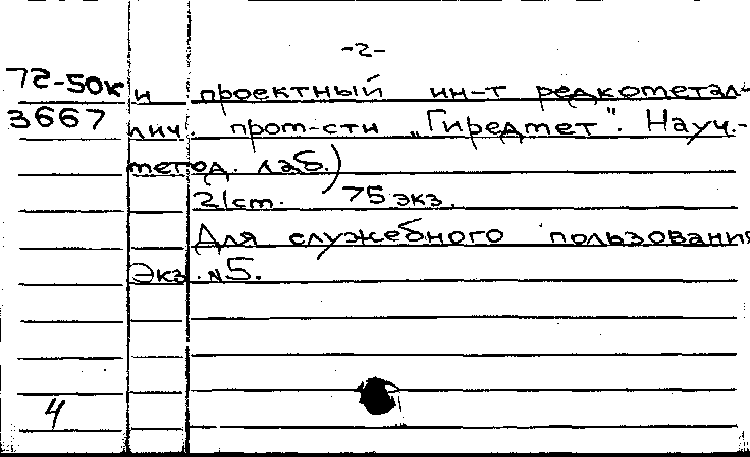 -2-
72-50к и проектный ин-т редкометал-
3667 лич. пром-сти „Гиредмет". Науч.-
метод. лаб.)
21ст. 75 экз.
Для служебного пользования
Экз. №5.
4